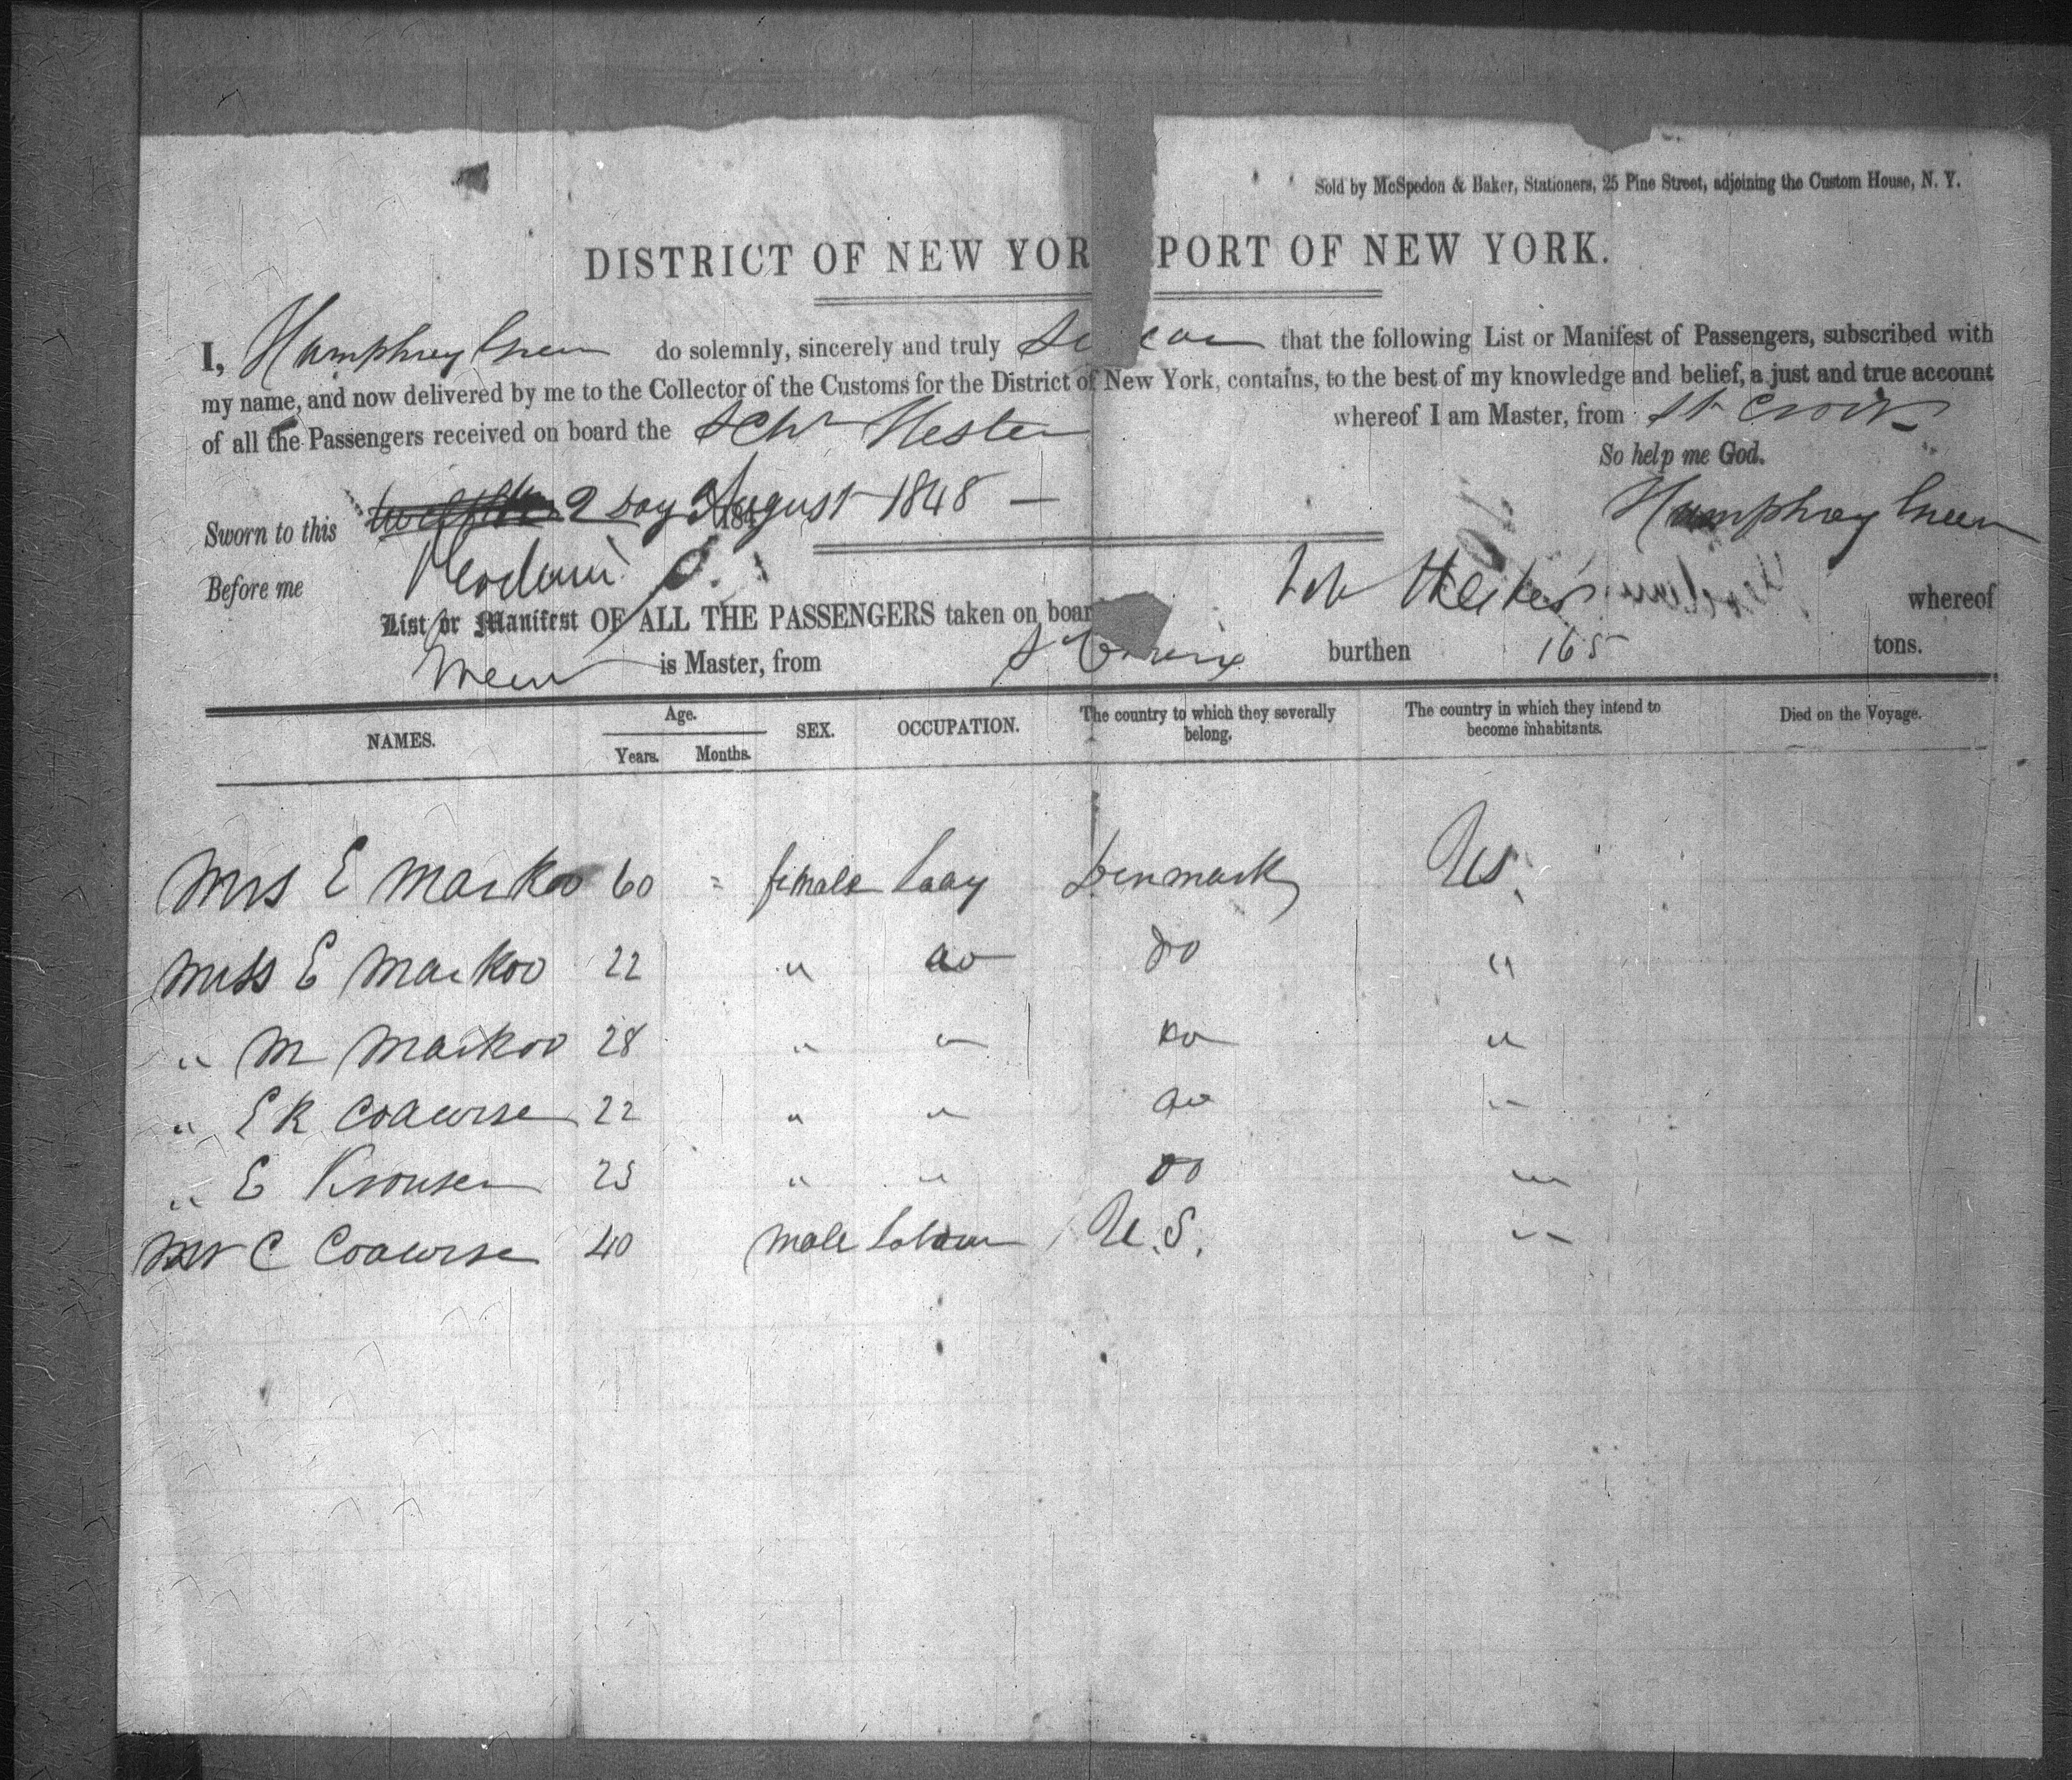 Sold by McSpedon & Baker, Stationers, 25 Pine Street, adjoining the Custom House, N. Y.
DISTRICT OF NEW YOR PORT OF NEW YORK.
I, Humphrey Green do solemnly, sincerely and truly that the following List or Manifest of Passengers, subscribed with
my name, and now delivered by me to the Collector of the Customs for the District of New York, contains, to the best of my knowledge and belief, a just and true account
of all the Passengers received on board the Schr Hester whereof I am Master, from St Croix
So help me God.
Sworn to this 2 Day August 1848
Humphrey Green
Before me
List or Manifest OF ALL THE PASSENGERS taken on boar whereof
is Master, from St Croix burthen 165 tons.
NAMES. Age. Years. Months. SEX. OCCUPATION. The country to which they severally belong. The country in which they intend to become inhabitants. Died on the Voyage.
Mrs E Markoo 60 = female Lady Denmark US.
Miss E Markoo 22 " do do "
" M Markoo 28 " " do "
" E R Coacurse 22 " " do "
" E Kronsen 23 " " do "
Mr C Coacurse 40 male U.S. "